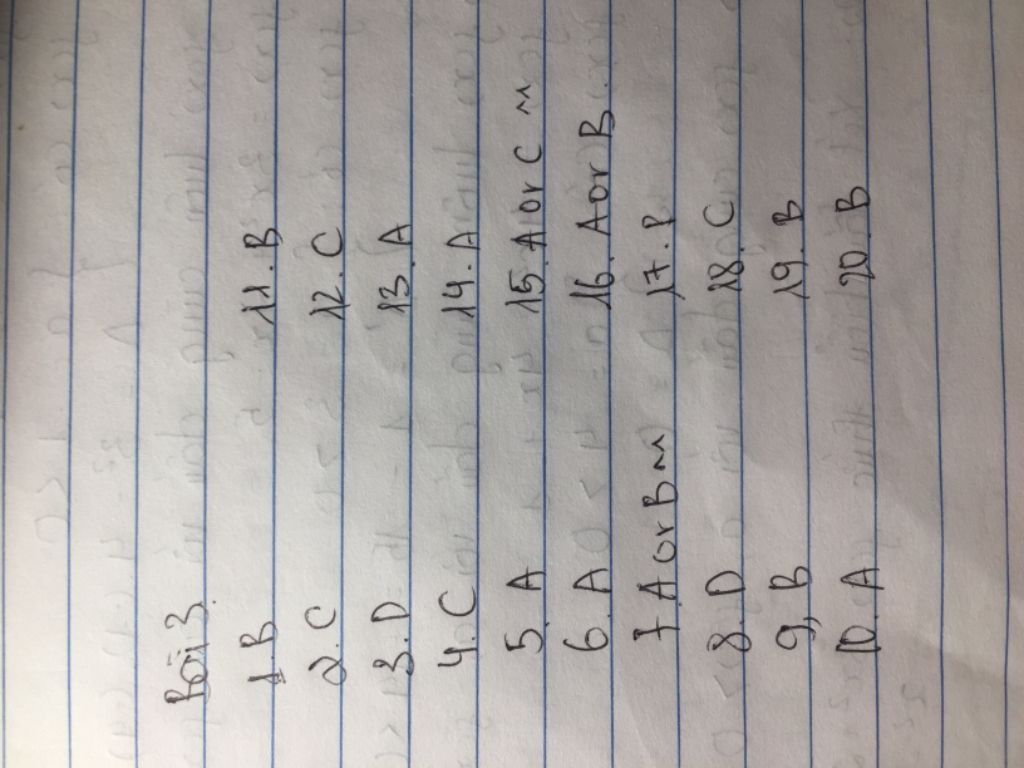 Bài 3.
1. B
2. C
3. D
4. C
5. A
6. A
7. A or B
8. D
9, B
10. A
11. B
12. C
13. A
14. A
15. A or C
16. A or B
17. B
18. C
19. B
20. B